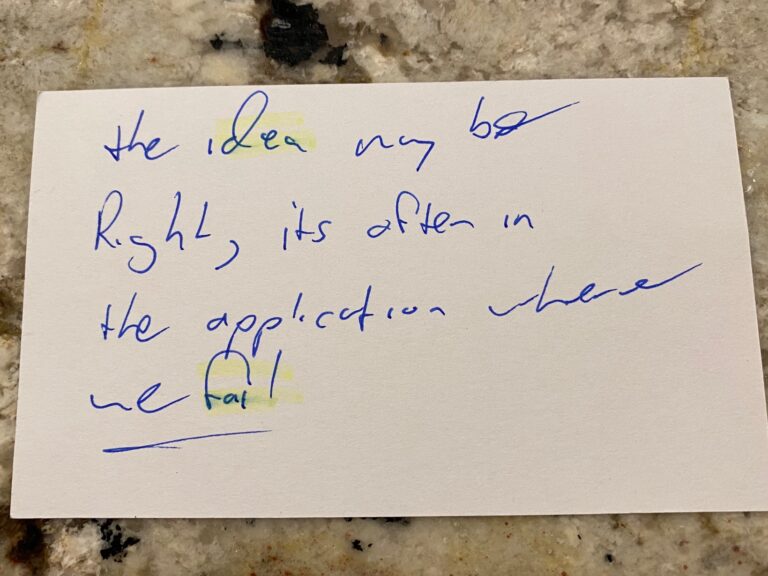 the idea may be
Right, its often in
the application where
we fail